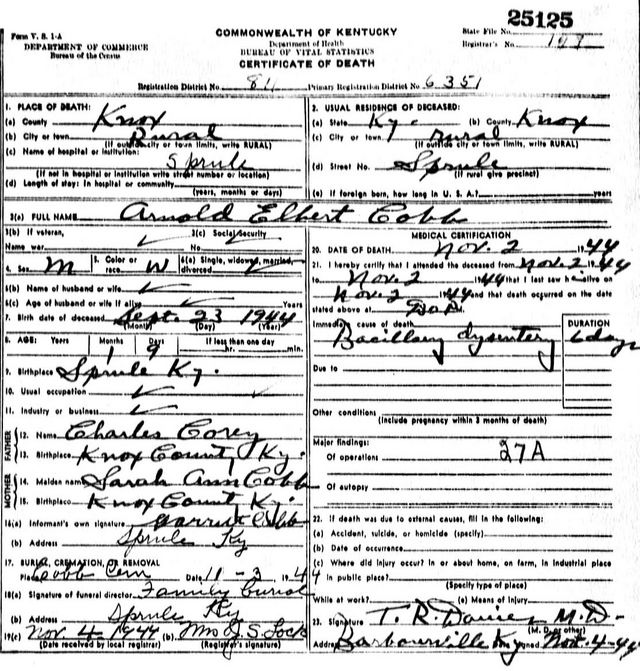 25125
Form V. S. 1-A
DEPARTMENT OF COMMERCE
Bureau of the Census
COMMONWEALTH OF KENTUCKY
Department of Health
BUREAU OF VITAL STATISTICS
CERTIFICATE OF DEATH
State File No.
Registrar's No. 197
Registration District No. 84 Primary Registration District No. 6351
1. PLACE OF DEATH:
(a) County Knox
(b) City or town Rural
(If outside city or town limits, write RURAL)
(c) Name of hospital or institution:
Sprule
(If not in hospital or institution write street number or location)
(d) Length of stay: In hospital or community
(years, months or days)
2. USUAL RESIDENCE OF DECEASED:
(a) State Ky. (b) County Knox
(c) City or town Rural
(If outside city or town limits, write RURAL)
(d) Street No. Sprule
(If rural give precinct)
(e) If foreign born, how long in U. S. A.? years
3(a) FULL NAME Arnold Elbert Cobb
3(b) If veteran,
Name war
3(c) Social Security
No.
4. Sex M 5. Color or race W 6(a) Single, widowed, married, divorced
6(b) Name of husband or wife
6(c) Age of husband or wife if alive Years
7. Birth date of deceased Sept. 23 1944
(Month) (Day) (Year)
8. AGE: Years Months Days If less than one day
1 9 hr. min.
9. Birthplace Sprule Ky.
10. Usual occupation
11. Industry or business
FATHER
12. Name Charles Corey
13. Birthplace Knox County Ky.
MOTHER
14. Maiden name Sarah Ann Cobb
15. Birthplace Knox County Ky.
16(a) Informant's own signature Cobb
(b) Address Sprule Ky
17. BURIAL, CREMATION, OR REMOVAL
Place Cobb Cem Date 11-3 1944
18(a) Signature of funeral director Family burial
(b) Address Sprule Ky
19(c) Nov. 4-1944 (b) Mrs J. S. Lock
(Date received by local registrar) (Registrar's signature)
MEDICAL CERTIFICATION
20. DATE OF DEATH Nov. 2 1944
21. I hereby certify that I attended the deceased from Nov. 2 1944
to Nov. 2 1944 that I last saw h alive on
Nov. 2 1944 and that death occurred on the date
stated above at
Immediate cause of death DURATION
Bacillary dysentery 6 days
Due to
Other conditions
(Include pregnancy within 3 months of death)
Major findings:
Of operations 27A
Of autopsy
22. If death was due to external causes, fill in the following:
(a) Accident, suicide, or homicide (specify)
(b) Date of occurrence
(c) Where did injury occur? In or about home, on farm, in industrial place
in public place?
(Specify type of place)
While at work? (e) Means of injury
23. Signature T. R. Davies M.D.
(M. D. or other)
Address Barbourville Ky signed Nov. 4-44